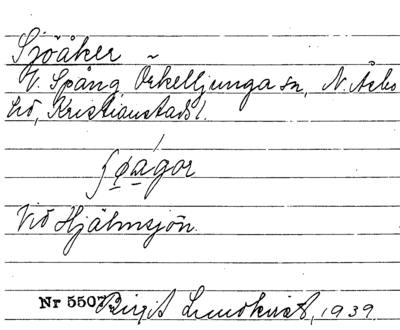 Sjöåker
V. Spång, Örkelljunga sn, N. Åsbo
hd, Kristianstads l.
Vid Hjälmsjön.
Nr 5507 Birgit Lundkvist, 1939